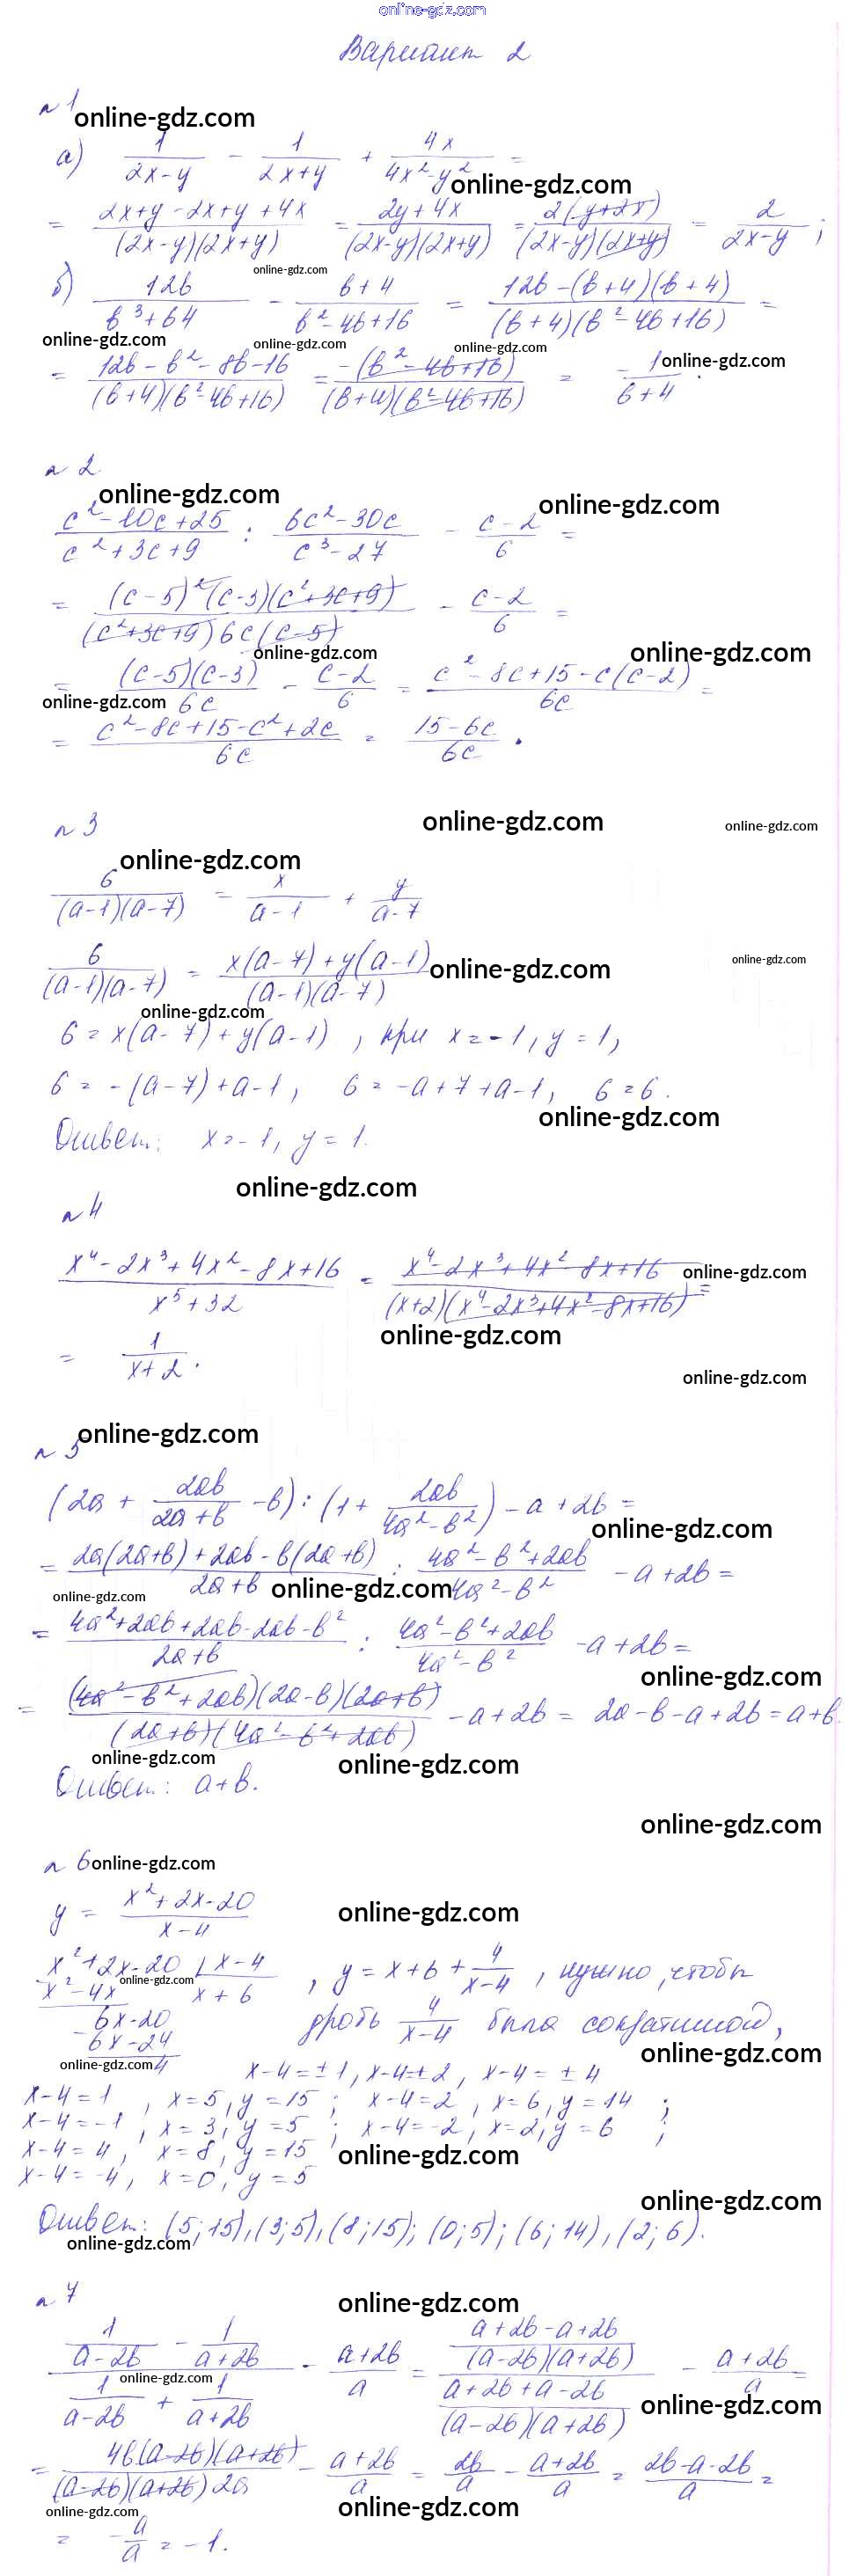 online-gdz.com
Вариант 2
n 1
online-gdz.com
а) 1/(2x-y) - 1/(2x+y) + 4x/(4x²-y²) =
online-gdz.com
= (2x+y-2x+y+4x)/((2x-y)(2x+y)) = (2y+4x)/((2x-y)(2x+y)) = 2(y+2x)/((2x-y)(2x+y)) = 2/(2x-y);
online-gdz.com
б) 12b/(b³+64) - (b+4)/(b²-4b+16) = (12b-(b+4)(b+4))/((b+4)(b²-4b+16)) =
online-gdz.com online-gdz.com online-gdz.com
= (12b-b²-8b-16)/((b+4)(b²-4b+16)) = -(b²-4b+16)/((b+4)(b²-4b+16)) = -1/(b+4).
online-gdz.com
n 2
online-gdz.com online-gdz.com
(c²-10c+25)/(c²+3c+9) : (6c²-30c)/(c³-27) - (c-2)/6 =
= (c-5)²(c-3)(c²+3c+9)/((c²+3c+9)6c(c-5)) - (c-2)/6 =
online-gdz.com online-gdz.com
= (c-5)(c-3)/6c - (c-2)/6 = (c²-8c+15-c(c-2))/6c =
online-gdz.com
= (c²-8c+15-c²+2c)/6c = (15-6c)/6c.
n 3
online-gdz.com online-gdz.com
online-gdz.com
6/((a-1)(a-7)) = x/(a-1) + y/(a-7)
6/((a-1)(a-7)) = (x(a-7)+y(a-1))/((a-1)(a-7))
online-gdz.com online-gdz.com
online-gdz.com
6 = x(a-7)+y(a-1), при x=-1, y=1,
6 = -(a-7)+a-1, 6 = -a+7+a-1, 6=6.
online-gdz.com
Ответ: x=-1, y=1.
online-gdz.com
n 4
(x⁴-2x³+4x²-8x+16)/(x⁵+32) = (x⁴-2x³+4x²-8x+16)/((x+2)(x⁴-2x³+4x²-8x+16)) =
online-gdz.com
online-gdz.com
= 1/(x+2).
online-gdz.com
n 5
online-gdz.com
(2a + 2ab/(2a+b) - b) : (1 + 2ab/(4a²-b²)) - a + 2b =
online-gdz.com
= (2a(2a+b)+2ab-b(2a+b))/(2a+b) : (4a²-b²+2ab)/(4a²-b²) - a+2b =
online-gdz.com online-gdz.com
= (4a²+2ab+2ab-2ab-b²)/(2a+b) : (4a²-b²+2ab)/(4a²-b²) - a+2b =
online-gdz.com
= (4a²-b²+2ab)(2a-b)(2a+b)/((2a+b)(4a²-b²+2ab)) - a+2b = 2a-b-a+2b = a+b.
online-gdz.com online-gdz.com
Ответ: a+b.
online-gdz.com
n 6
online-gdz.com
y = (x²+2x-20)/(x-4)
online-gdz.com
x²+2x-20 | x-4
x²-4x x+6
online-gdz.com
6x-20
6x-24
4
, y = x+6+4/(x-4), нужно, чтобы
дробь 4/(x-4) была сократимой,
online-gdz.com online-gdz.com
x-4=±1, x-4=±2, x-4=±4
x-4=1, x=5, y=15; x-4=2, x=6, y=14;
x-4=-1, x=3, y=5; x-4=-2, x=2, y=6;
x-4=4, x=8, y=15
online-gdz.com
x-4=-4, x=0, y=5
online-gdz.com
Ответ: (5;15), (3;5), (8;15); (0;5); (6;14), (2;6).
online-gdz.com
n 7
online-gdz.com
(1/(a-2b) - 1/(a+2b))/(1/(a-2b) + 1/(a+2b)) - (a+2b)/a = ((a+2b-a+2b)/((a-2b)(a+2b)))/((a+2b+a-2b)/((a-2b)(a+2b))) - (a+2b)/a =
online-gdz.com online-gdz.com
= 4b(a-2b)(a+2b)/((a-2b)(a+2b)2a) - (a+2b)/a = 2b/a - (a+2b)/a = (2b-a-2b)/a =
online-gdz.com online-gdz.com
= -a/a = -1.